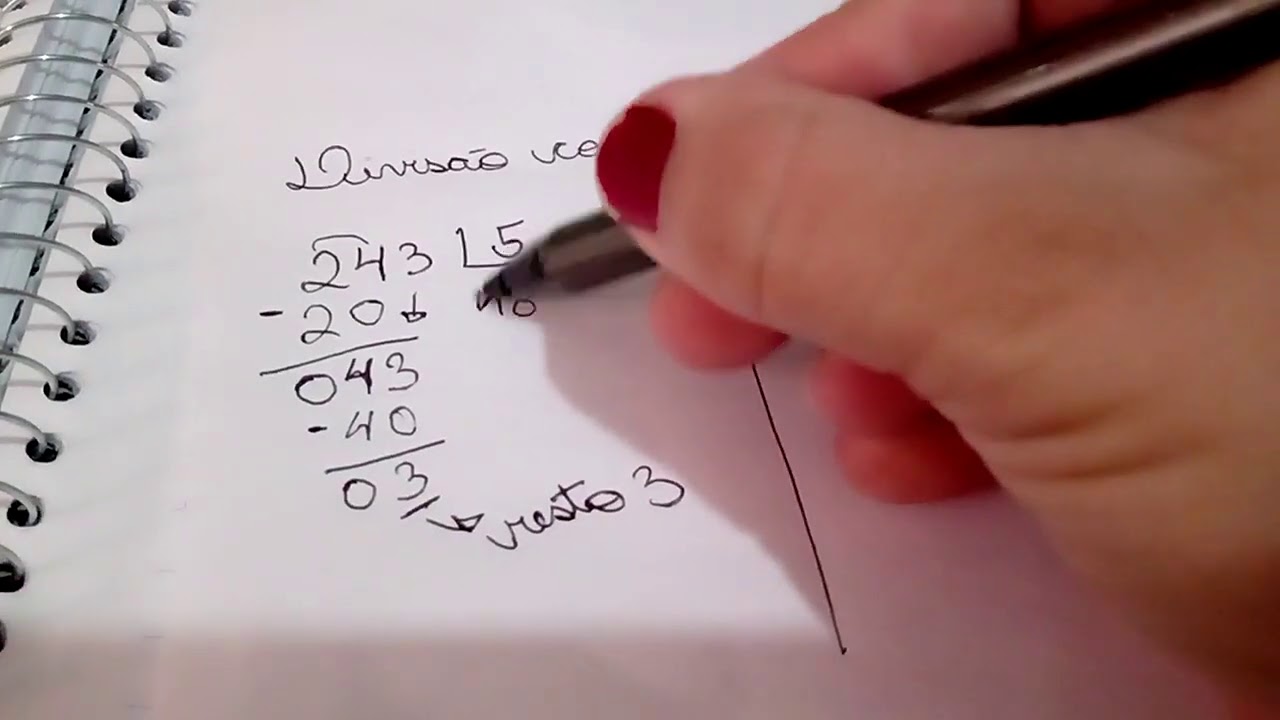 Divisão
243 5
- 20
043
- 40
03
resto 3